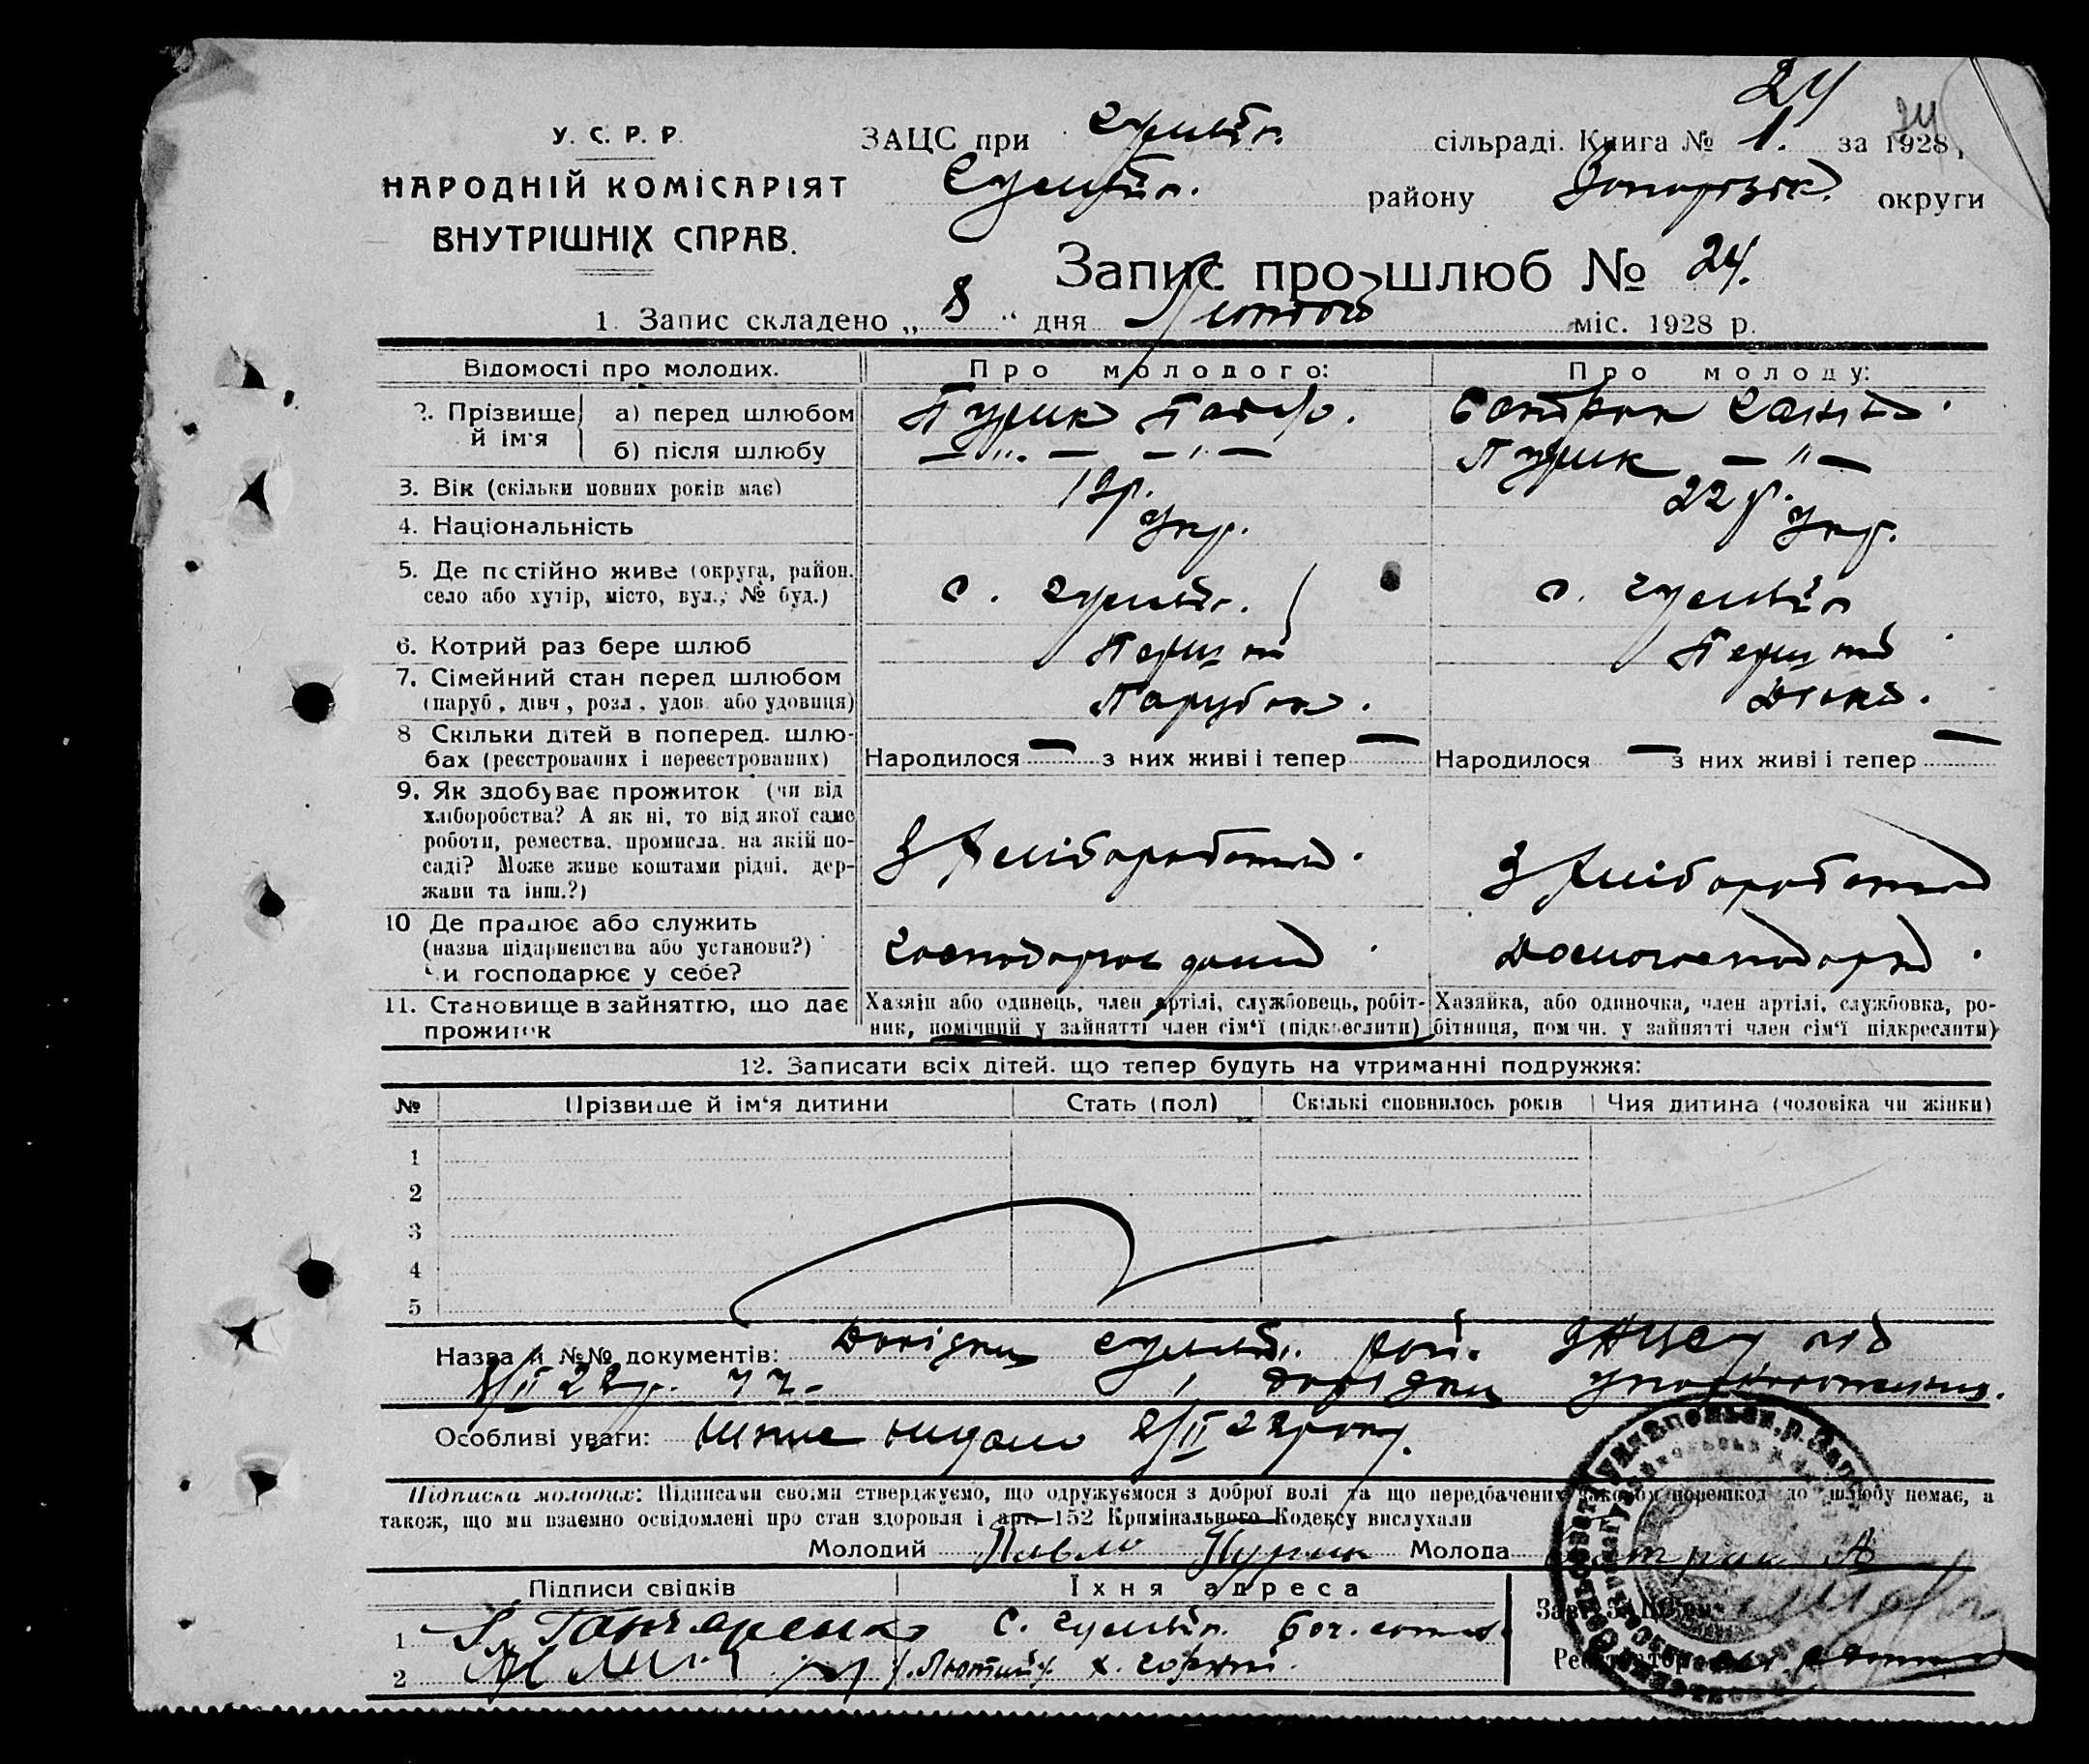 24
24
У. С. Р. Р.
НАРОДНІЙ КОМІСАРІЯТ
ВНУТРІШНІХ СПРАВ.
ЗАЦС при Гуляйп. сільраді. Книга № 1. за 1928 р.
Гуляйп. району Запорізьк. округи
Запис про шлюб № 24.
1. Запис складено „ 8 " дня Лютого міс. 1928 р.
Відомості про молодих. Про молодого: Про молоду:
2. Прізвище й ім'я а) перед шлюбом Пурик Павло.
б) після шлюбу — „. — — „ — Пурик — „ —
3. Вік (скільки повних років має) 19р. 22 р.
4. Національність Укр. Укр.
5. Де постійно живе (округа, район, село або хутір, місто, вул., № буд.) с. Гуляйп. с. Гуляйп
6. Котрий раз бере шлюб Перший Перший
7. Сімейний стан перед шлюбом (паруб., дівч., розл., удов. або удовиця) Парубок. Дівка.
8 Скільки дітей в поперед. шлюбах (реєстрованих і нереєстрованих) Народилося — з них живі і тепер — Народилося — з них живі і тепер —
9. Як здобуває прожиток (чи від хліборобства? А як ні, то від якої саме роботи, ремества, промисла, на якій посаді? Може живе коштами рідні, держави та інш.?) З хліборобства. З хліборобства
10 Де працює або служить (назва підприємства або установи?) Чи господарює у себе? Господарює дома. Домогосподарка.
11. Становище в зайняттю, що дає прожиток Хазяїн або одинець, член артілі, службовець, робітник, помічний у зайнятті член сім'ї (підкреслити) Хазяйка, або одиночка, член артілі, службовка, робітниця, помічн. у зайнятті член сім'ї підкреслити)
12. Записати всіх дітей, що тепер будуть на утриманні подружжя:
№ Прізвище й ім'я дитини Стать (пол) Скількі сповнилось років Чия дитина (чоловіка чи жінки)
1
2
3
4
5
Назва й №№ документів: Довідка Гуляйп. рай. ЗАЦСу від
8/II 28р. довідка
Особливі уваги: видано 8/II 28 року.
Підписка молодих: Підписами своїми стверджуємо, що одружуємося з доброї волі та що передбачених законом перешкод до шлюбу немає, а
також, що ми взаємно освідомлені про стан здоровля і арт. 152 Кримінального Кодексу вислухали
Молодий Павло Пурик Молода
Підписи свідків Їхня адреса
1 Гончаренко с. Гуляйп. 6 от. сотня.
2 х. Горький.
Зав. ЗАЦСом
Реєстратор